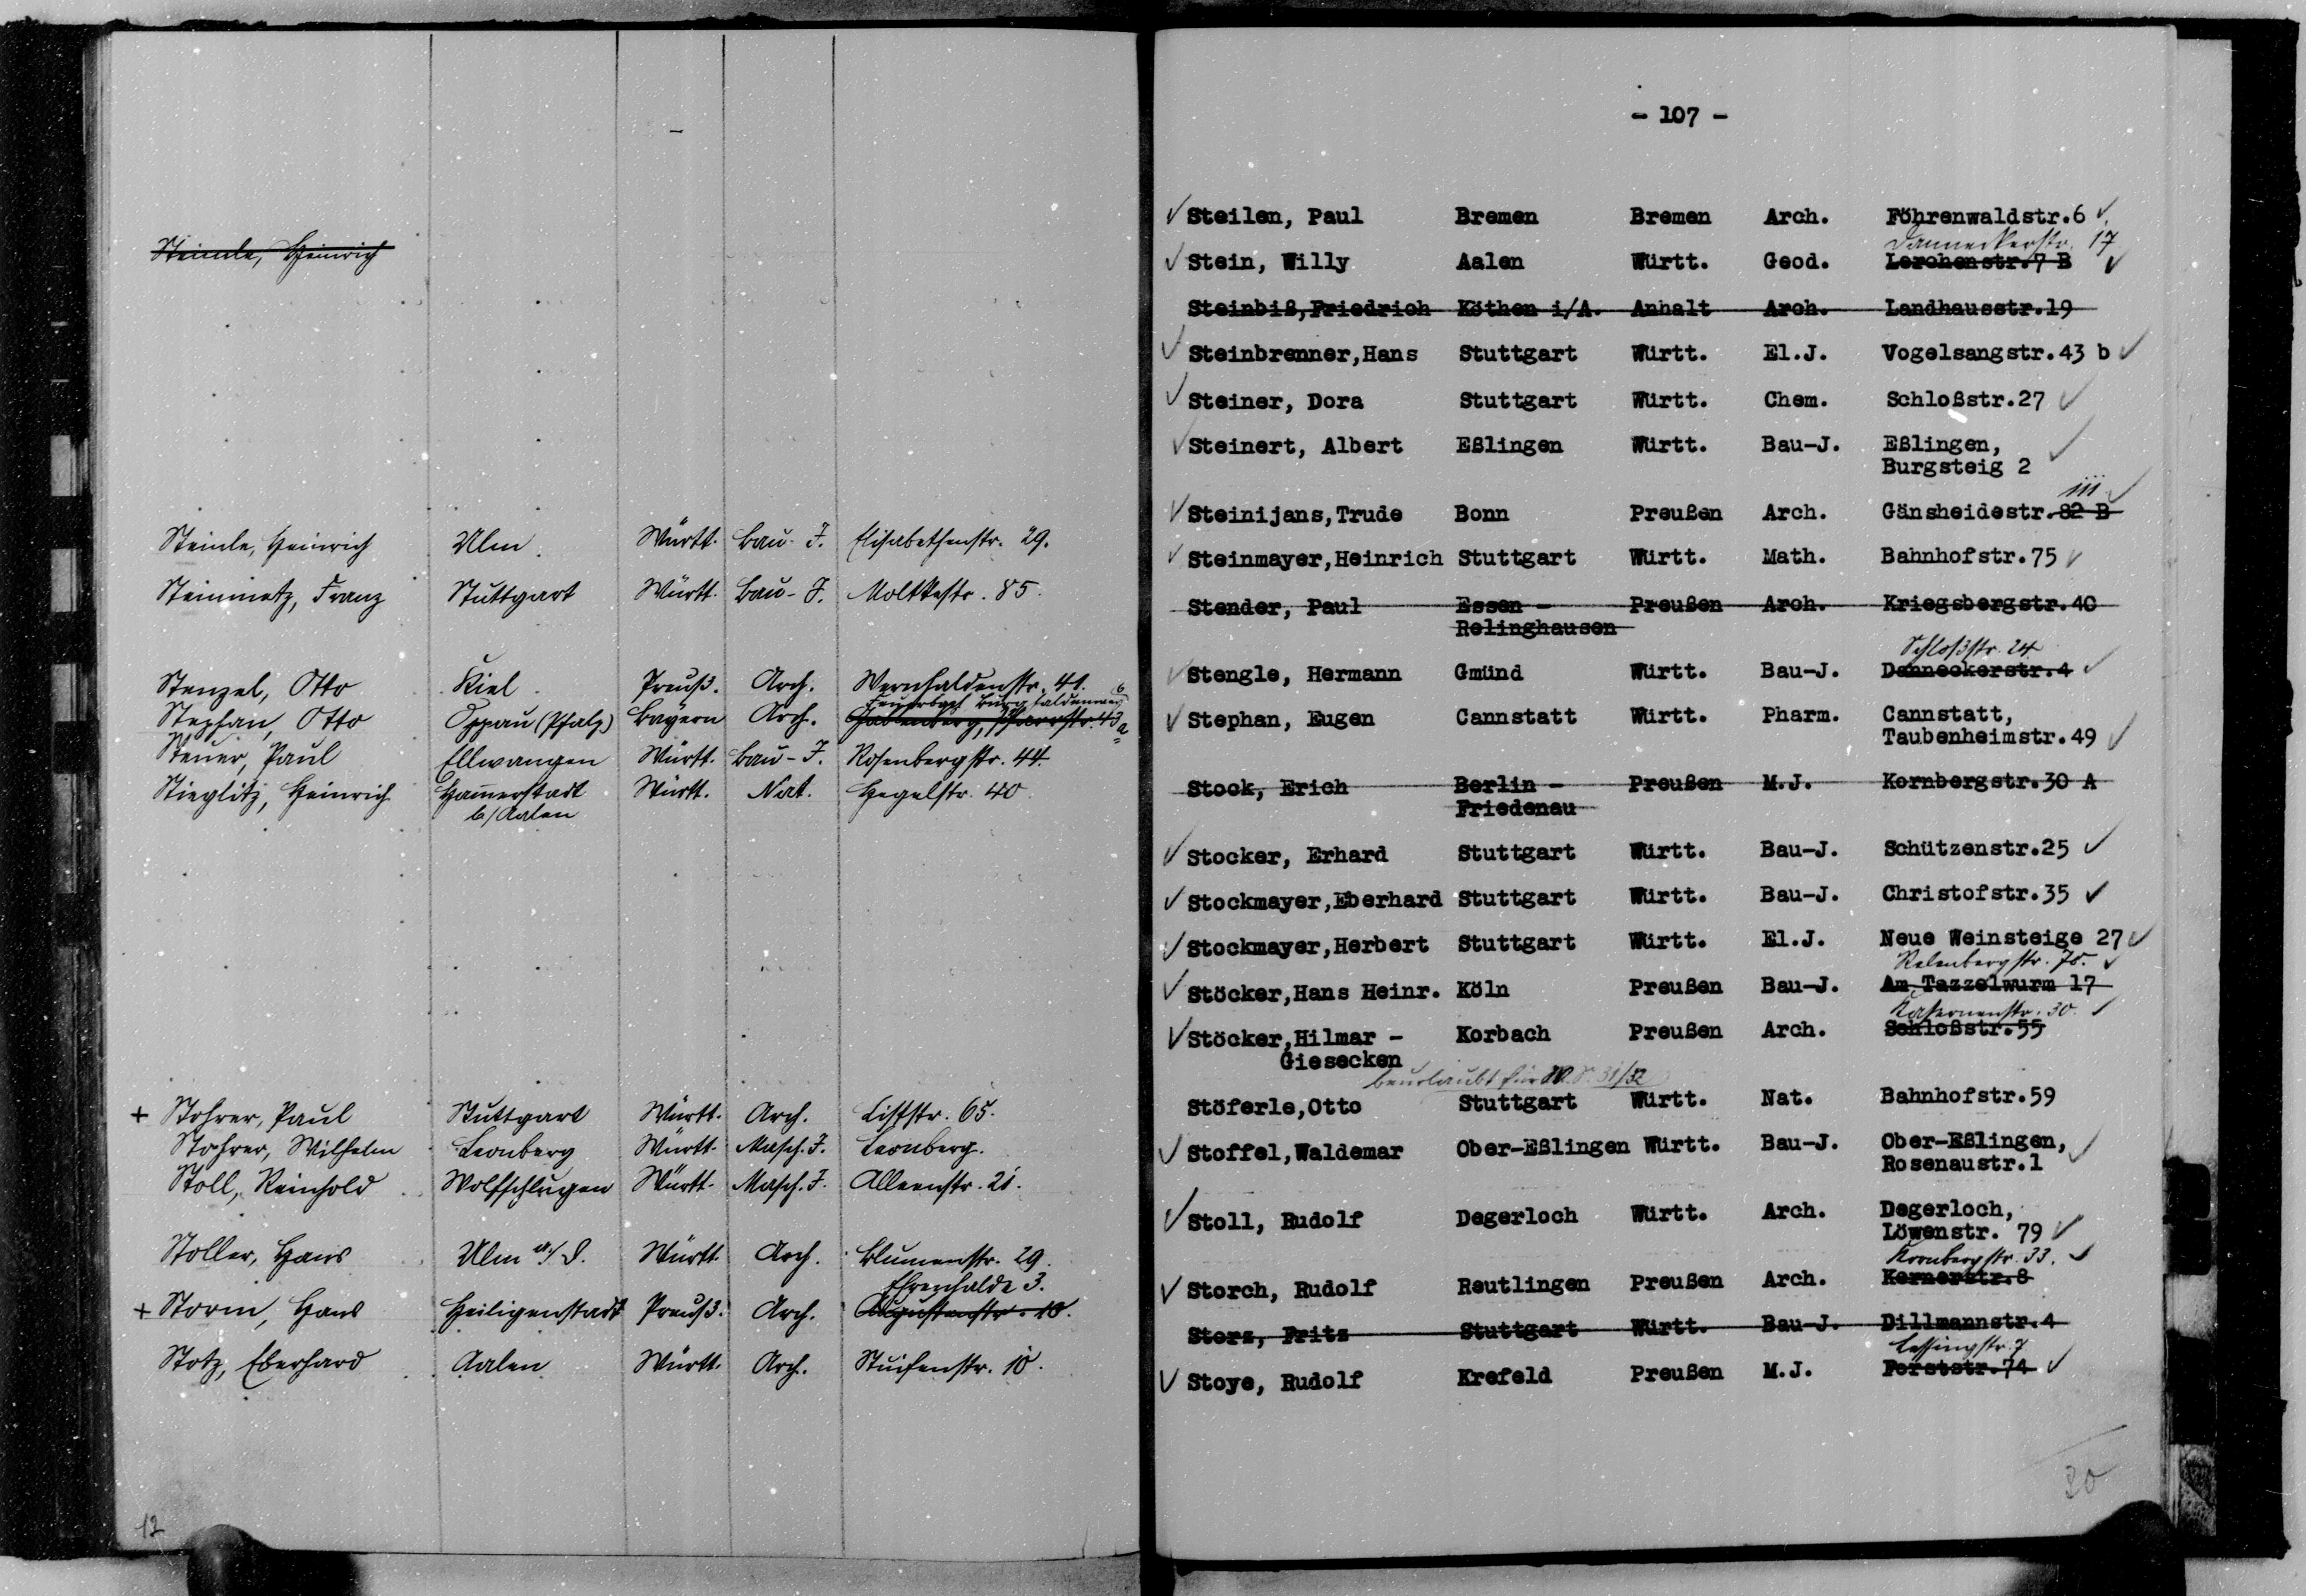 Steimle, Heinrich
Steimle, Heinrich Ulm. Württ. Bau-J. Elisabethenstr. 29.
Steinmetz, Franz Stuttgart Württ. Bau-J. Moltkestr. 85.
Stenzel, Otto Kiel Preuß. Arch. Wernhaldenstr. 41.
Feuerbach Burghaldenweg 6
Stephan, Otto Oppau (Pfalz) Bayern Arch. Gablenberg, Pfarrstr. 43 a
Steuer, Paul Ellwangen Württ. Bau-J. Rosenbergstr. 44.
Stieglitz, Heinrich Ham̄erstadt Württ. Nat. Hegelstr. 40.
b/Aalen
+ Stohrer, Paul Stuttgart Württ. Arch. Liststr. 65.
Stohrer, Wilhelm Leonberg Württ. Masch. J. Leonberg.
Stoll, Reinhold Wolfschlugen Württ. Masch. J. Alleenstr. 21.
Stoller, Hans Ulm a/D. Württ. Arch. Blumenstr. 29.
Ehrenhalde 3.
+ Storm, Hans Heiligenstadt Preuß. Arch. Augustenstr. 10.
Stotz, Eberhard Aalen Württ. Arch. Stuifenstr. 10.
12
- 107 -
✓ Steilen, Paul Bremen Bremen Arch. Föhrenwaldstr.6 ✓
Danneckerstr. 17
✓ Stein, Willy Aalen Württ. Geod. Lerchenstr.7 B ✓
Steinbiß,Friedrich Köthen i/A. Anhalt Arch. Landhausstr.19
✓ Steinbrenner,Hans Stuttgart Württ. El.J. Vogelsangstr.43 b ✓
✓ Steiner, Dora Stuttgart Württ. Chem. Schloßstr.27 ✓
✓ Steinert, Albert Eßlingen Württ. Bau-J. Eßlingen, ✓
Burgsteig 2
111 ✓
✓ Steinijans,Trude Bonn Preußen Arch. Gänsheidestr.82 B
✓ Steinmayer,Heinrich Stuttgart Württ. Math. Bahnhofstr.75 ✓
Stender, Paul Essen - Preußen Arch. Kriegsbergstr.40
Relinghausen
Schloßstr. 24
✓ Stengle, Hermann Gmünd Württ. Bau-J. Danneckerstr.4 ✓
✓ Stephan, Eugen Cannstatt Württ. Pharm. Cannstatt,
Taubenheimstr.49 ✓
Stock, Erich Berlin - Preußen M.J. Kornbergstr.30 A
Friedenau
✓ Stocker, Erhard Stuttgart Württ. Bau-J. Schützenstr.25 ✓
✓ Stockmayer,Eberhard Stuttgart Württ. Bau-J. Christofstr.35 ✓
✓ Stockmayer,Herbert Stuttgart Württ. El.J. Neue Weinsteige 27 ✓
Relenbergstr. 75. ✓
✓ Stöcker,Hans Heinr. Köln Preußen Bau-J. Am Tazzelwurm 17
Kasernenstr. 30. ✓
✓ Stöcker,Hilmar - Korbach Preußen Arch. Schloßstr.55
Giesecken
beurlaubt für W.S. 31/32
Stöferle,Otto Stuttgart Württ. Nat. Bahnhofstr.59
✓ Stoffel,Waldemar Ober-Eßlingen Württ. Bau-J. Ober-Eßlingen, ✓
Rosenaustr.1
✓ Stoll, Rudolf Degerloch Württ. Arch. Degerloch,
Löwenstr. 79 ✓
Kornbergstr. 33. ✓
✓ Storch, Rudolf Reutlingen Preußen Arch. Kernerstr.8
Storz, Fritz Stuttgart Württ. Bau-J. Dillmannstr.4
Lessingstr. 7
✓ Stoye, Rudolf Krefeld Preußen M.J. Forststr.74 ✓
20